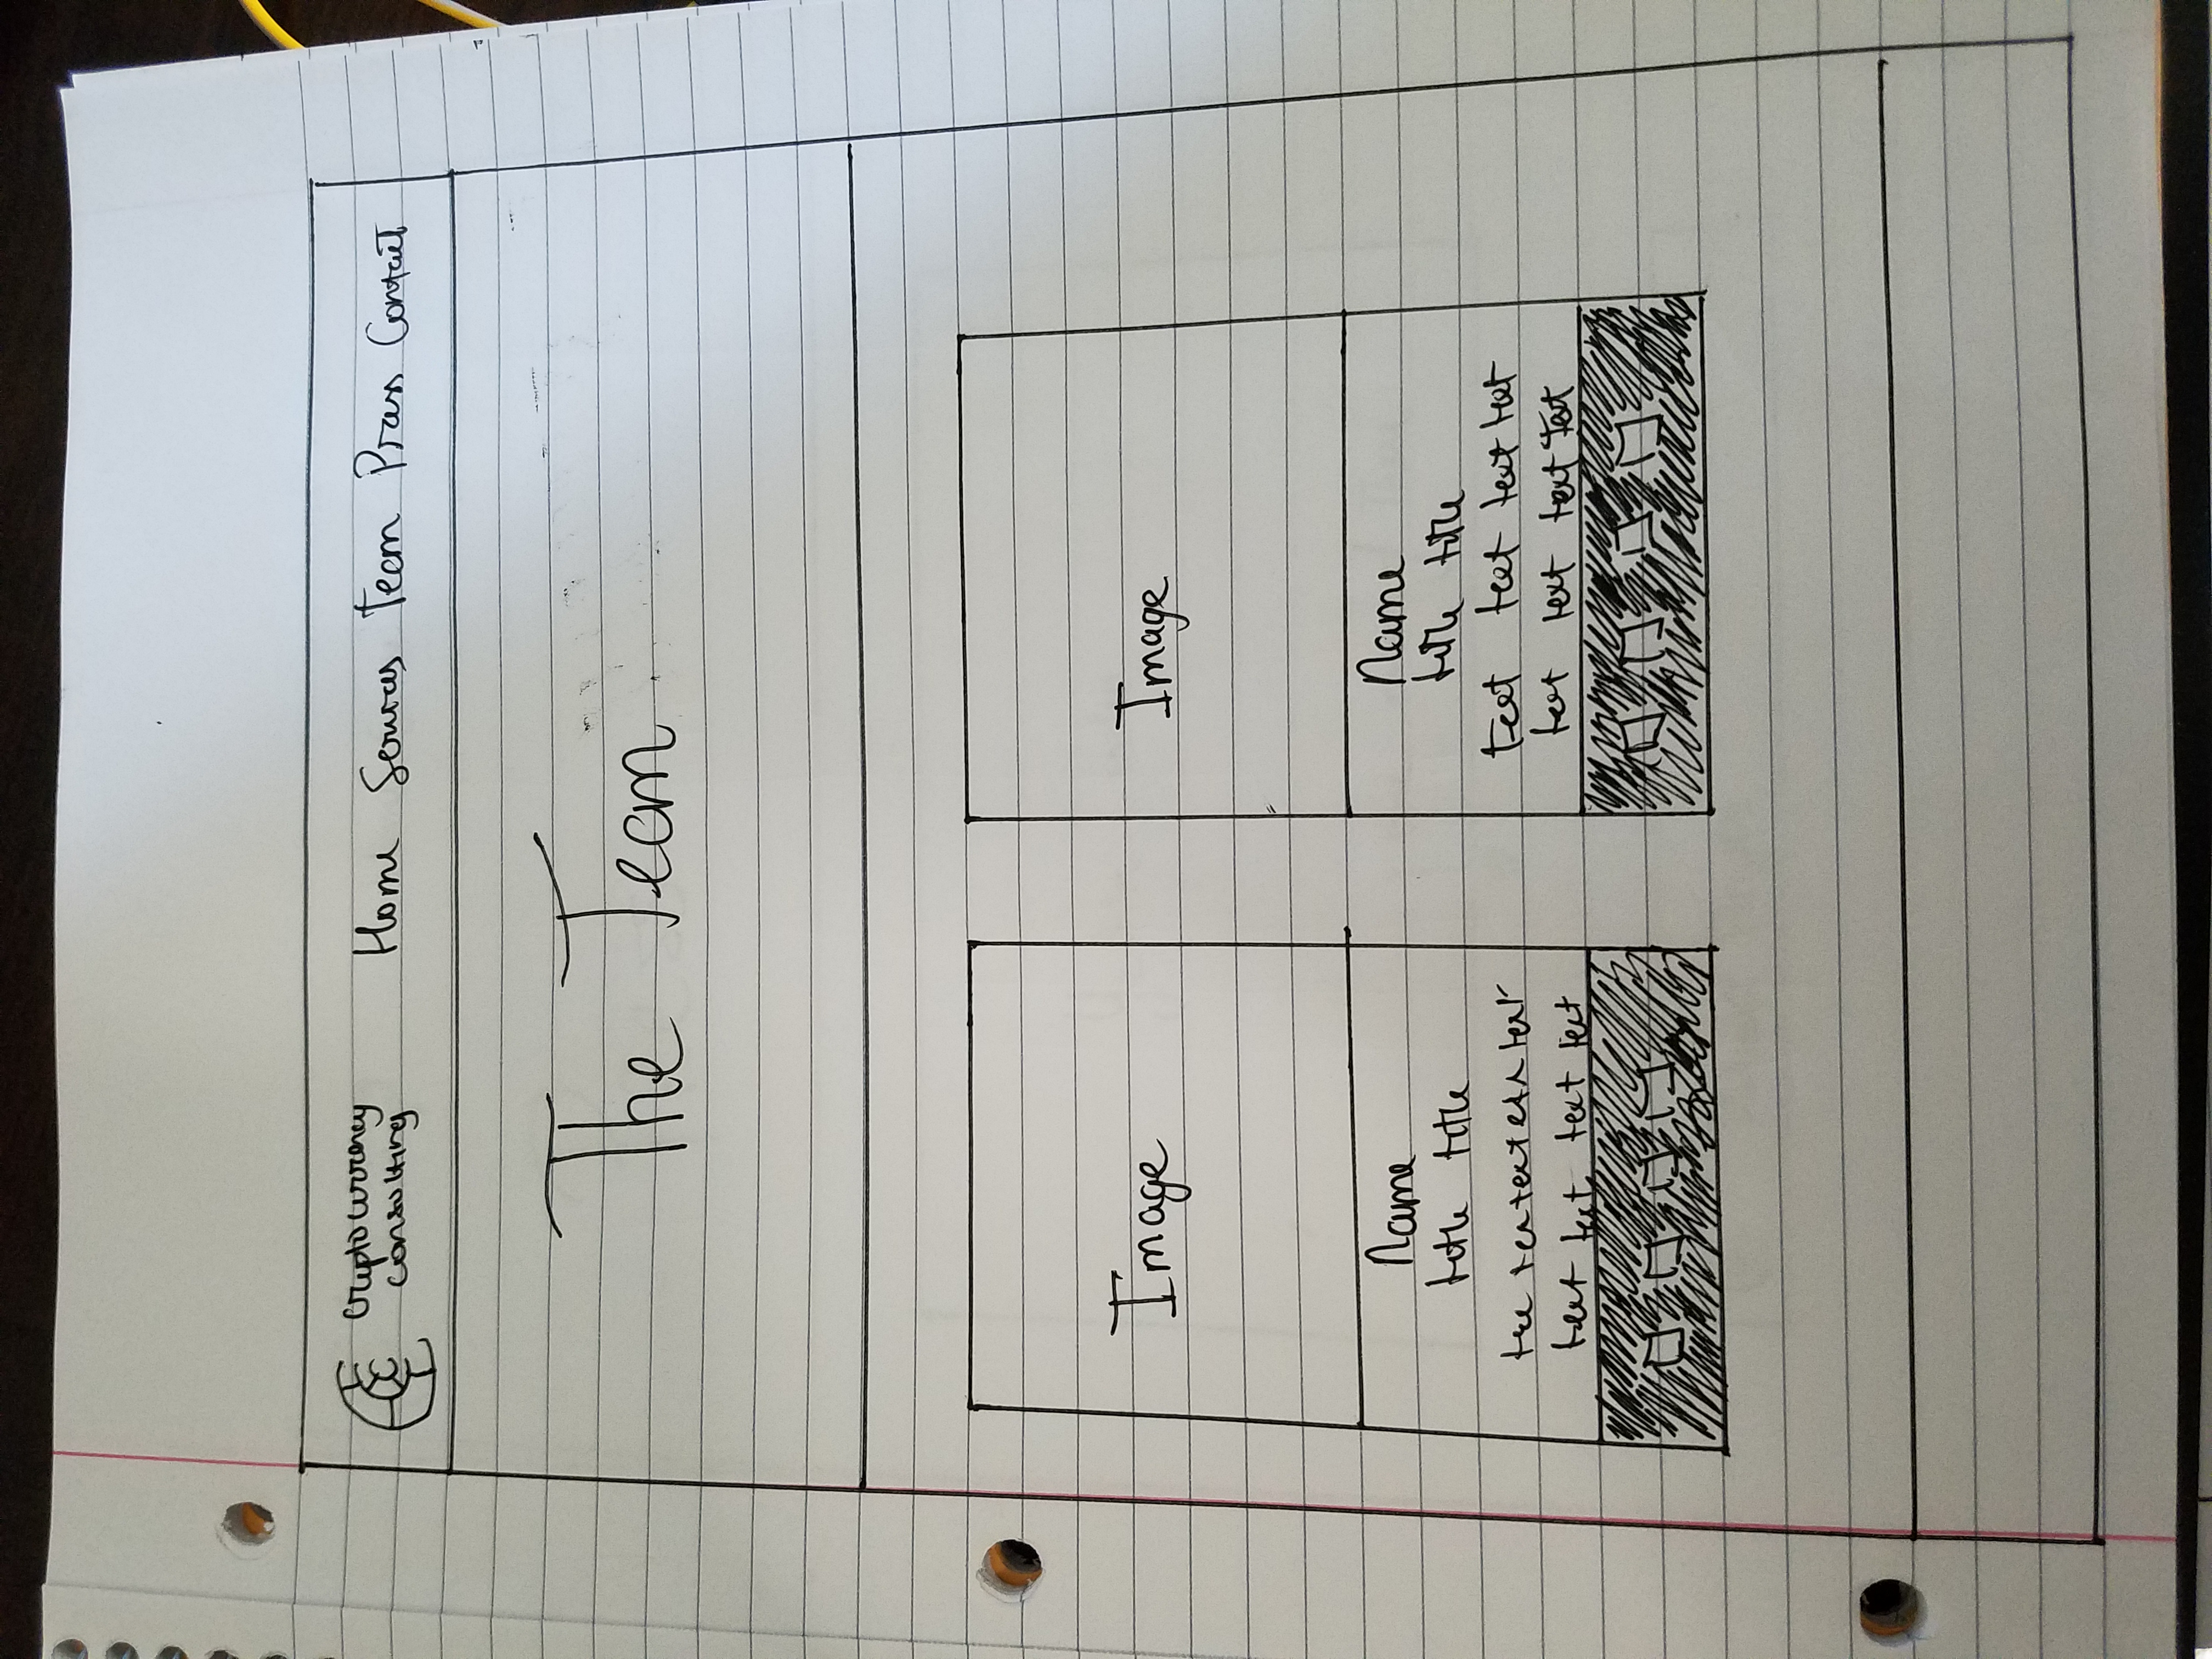 Cryptocurrency
consulting
Home Services Team Press Contact
The Team
Image
Image
Name
title title
text text
text text text text
Name
title title
text text text text
text text text text